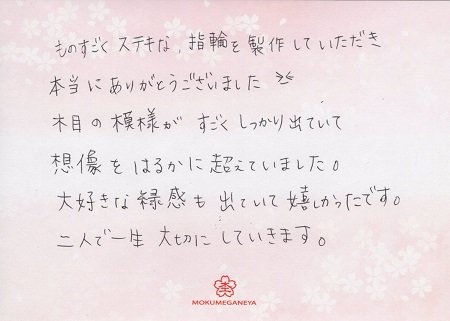 ものすごく ステキな、指輪を製作していただき
本当にありがとうございました
木目の模様が すごく しっかり出ていて
想像をはるかに超えていました。
大好きな緑感も出ていて嬉しかったです。
二人で一生 大切にしていきます。
MOKUMEGANEYA